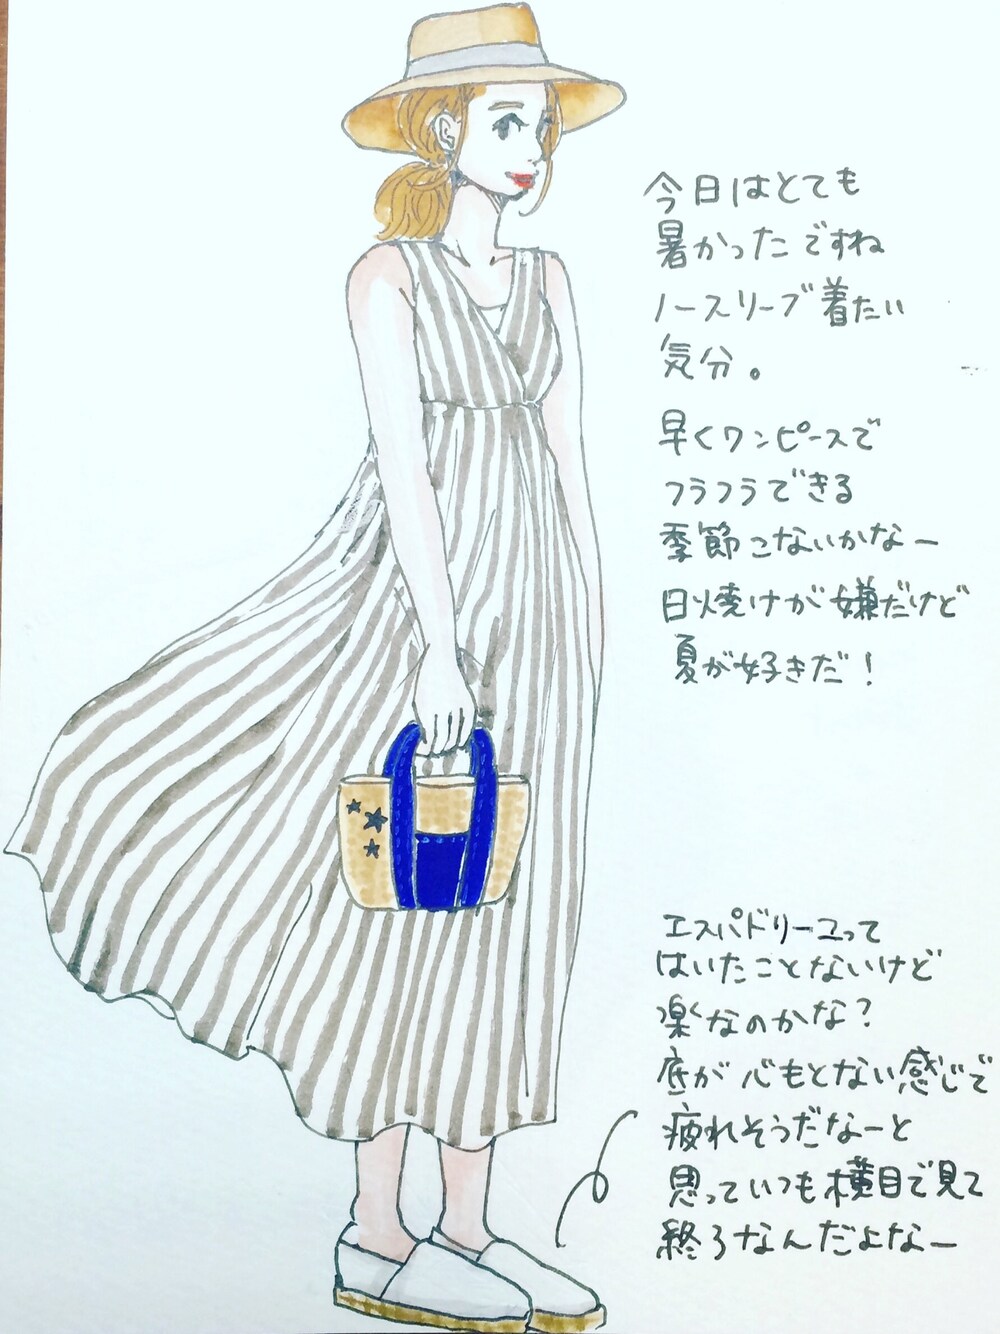 今日はとても
暑かったですね
ノースリーブ着たい
気分。
早くワンピースで
フラフラできる
季節こないかなー
日焼けが嫌だけど
夏が好きだ!
エスパドリーユって
はいたことないけど
楽なのかな?
底が心もとない感じで
疲れそうだなーと
思っていつも横目で見て
終ろなんだよなー